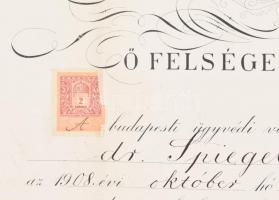 Ő FELSÉGE
2
A budapesti ügyvédi
dr. Spiegel
az 1908. évi október hó